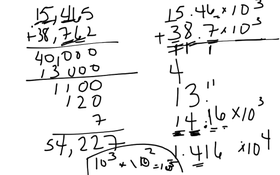 15,465
+38,762
40,000
13000
1100
120
7
54,227
15.46×10³
+38.7×10³
4
13."
14.16×10³
1.416×10⁴